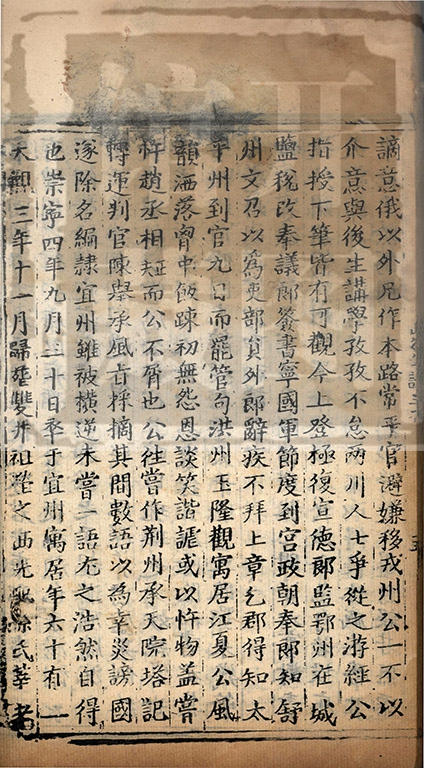 謫意俄以外兄作本路常平官避嫌移戎州公一不以
介意與後生講學孜孜不怠兩川人士爭從之游經公
指授下筆皆有可觀今上登極復宣德郎監鄂州在城
鹽稅改奉議郎簽書寧國軍節度到官政朝奉郎知舒
州文召以為吏部員外郎辭疾不拜上章乞郡得知太
平州到官九日而罷管句洪州玉隆觀寓居江夏公風
韻洒落胷中恢踈初無怨恩談笑諧謔或以忤物盖嘗
忤趙丞相挺而公不屑也公徃嘗作荆州承天院塔記
轉運判官陳舉承風旨採摘其間數語以為幸災謗國
遂除名編隷宜州雖被橫逆未嘗一語及之浩然自得
也崇寧四年九月三十日卒于宜州寓居年六十有一
大觀三年十一月歸葬雙井祖塋之西先